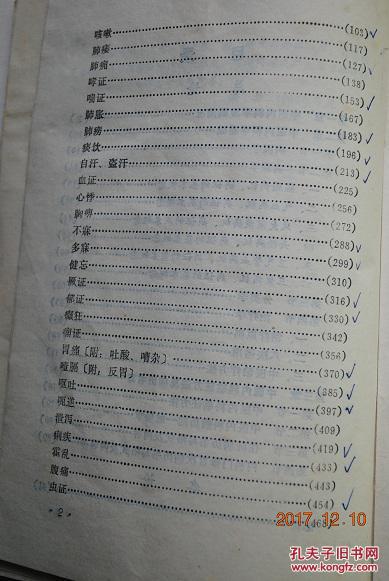 咳嗽……(103)
肺痿……(117)
肺痈……(127)
哮证……(138)
喘证……(153)
肺胀……(167)
肺痨……(183)
痰饮……(196)
自汗、盗汗……(213)
血证……(225)
心悸……(256)
胸痹……(272)
不寐……(288)
多寐……(299)
健忘……(310)
厥证……(316)
郁证……(330)
癫狂……(342)
痫证……(356)
胃痛〔附:吐酸、嘈杂〕……(370)
噎膈〔附:反胃〕……(385)
呕吐……(397)
呃逆……(409)
泄泻……(419)
痢疾……(433)
霍乱……(443)
腹痛……(454)
虫证……(468)
·2·
2017.12.10
孔夫子旧书网
www.kongfz.com